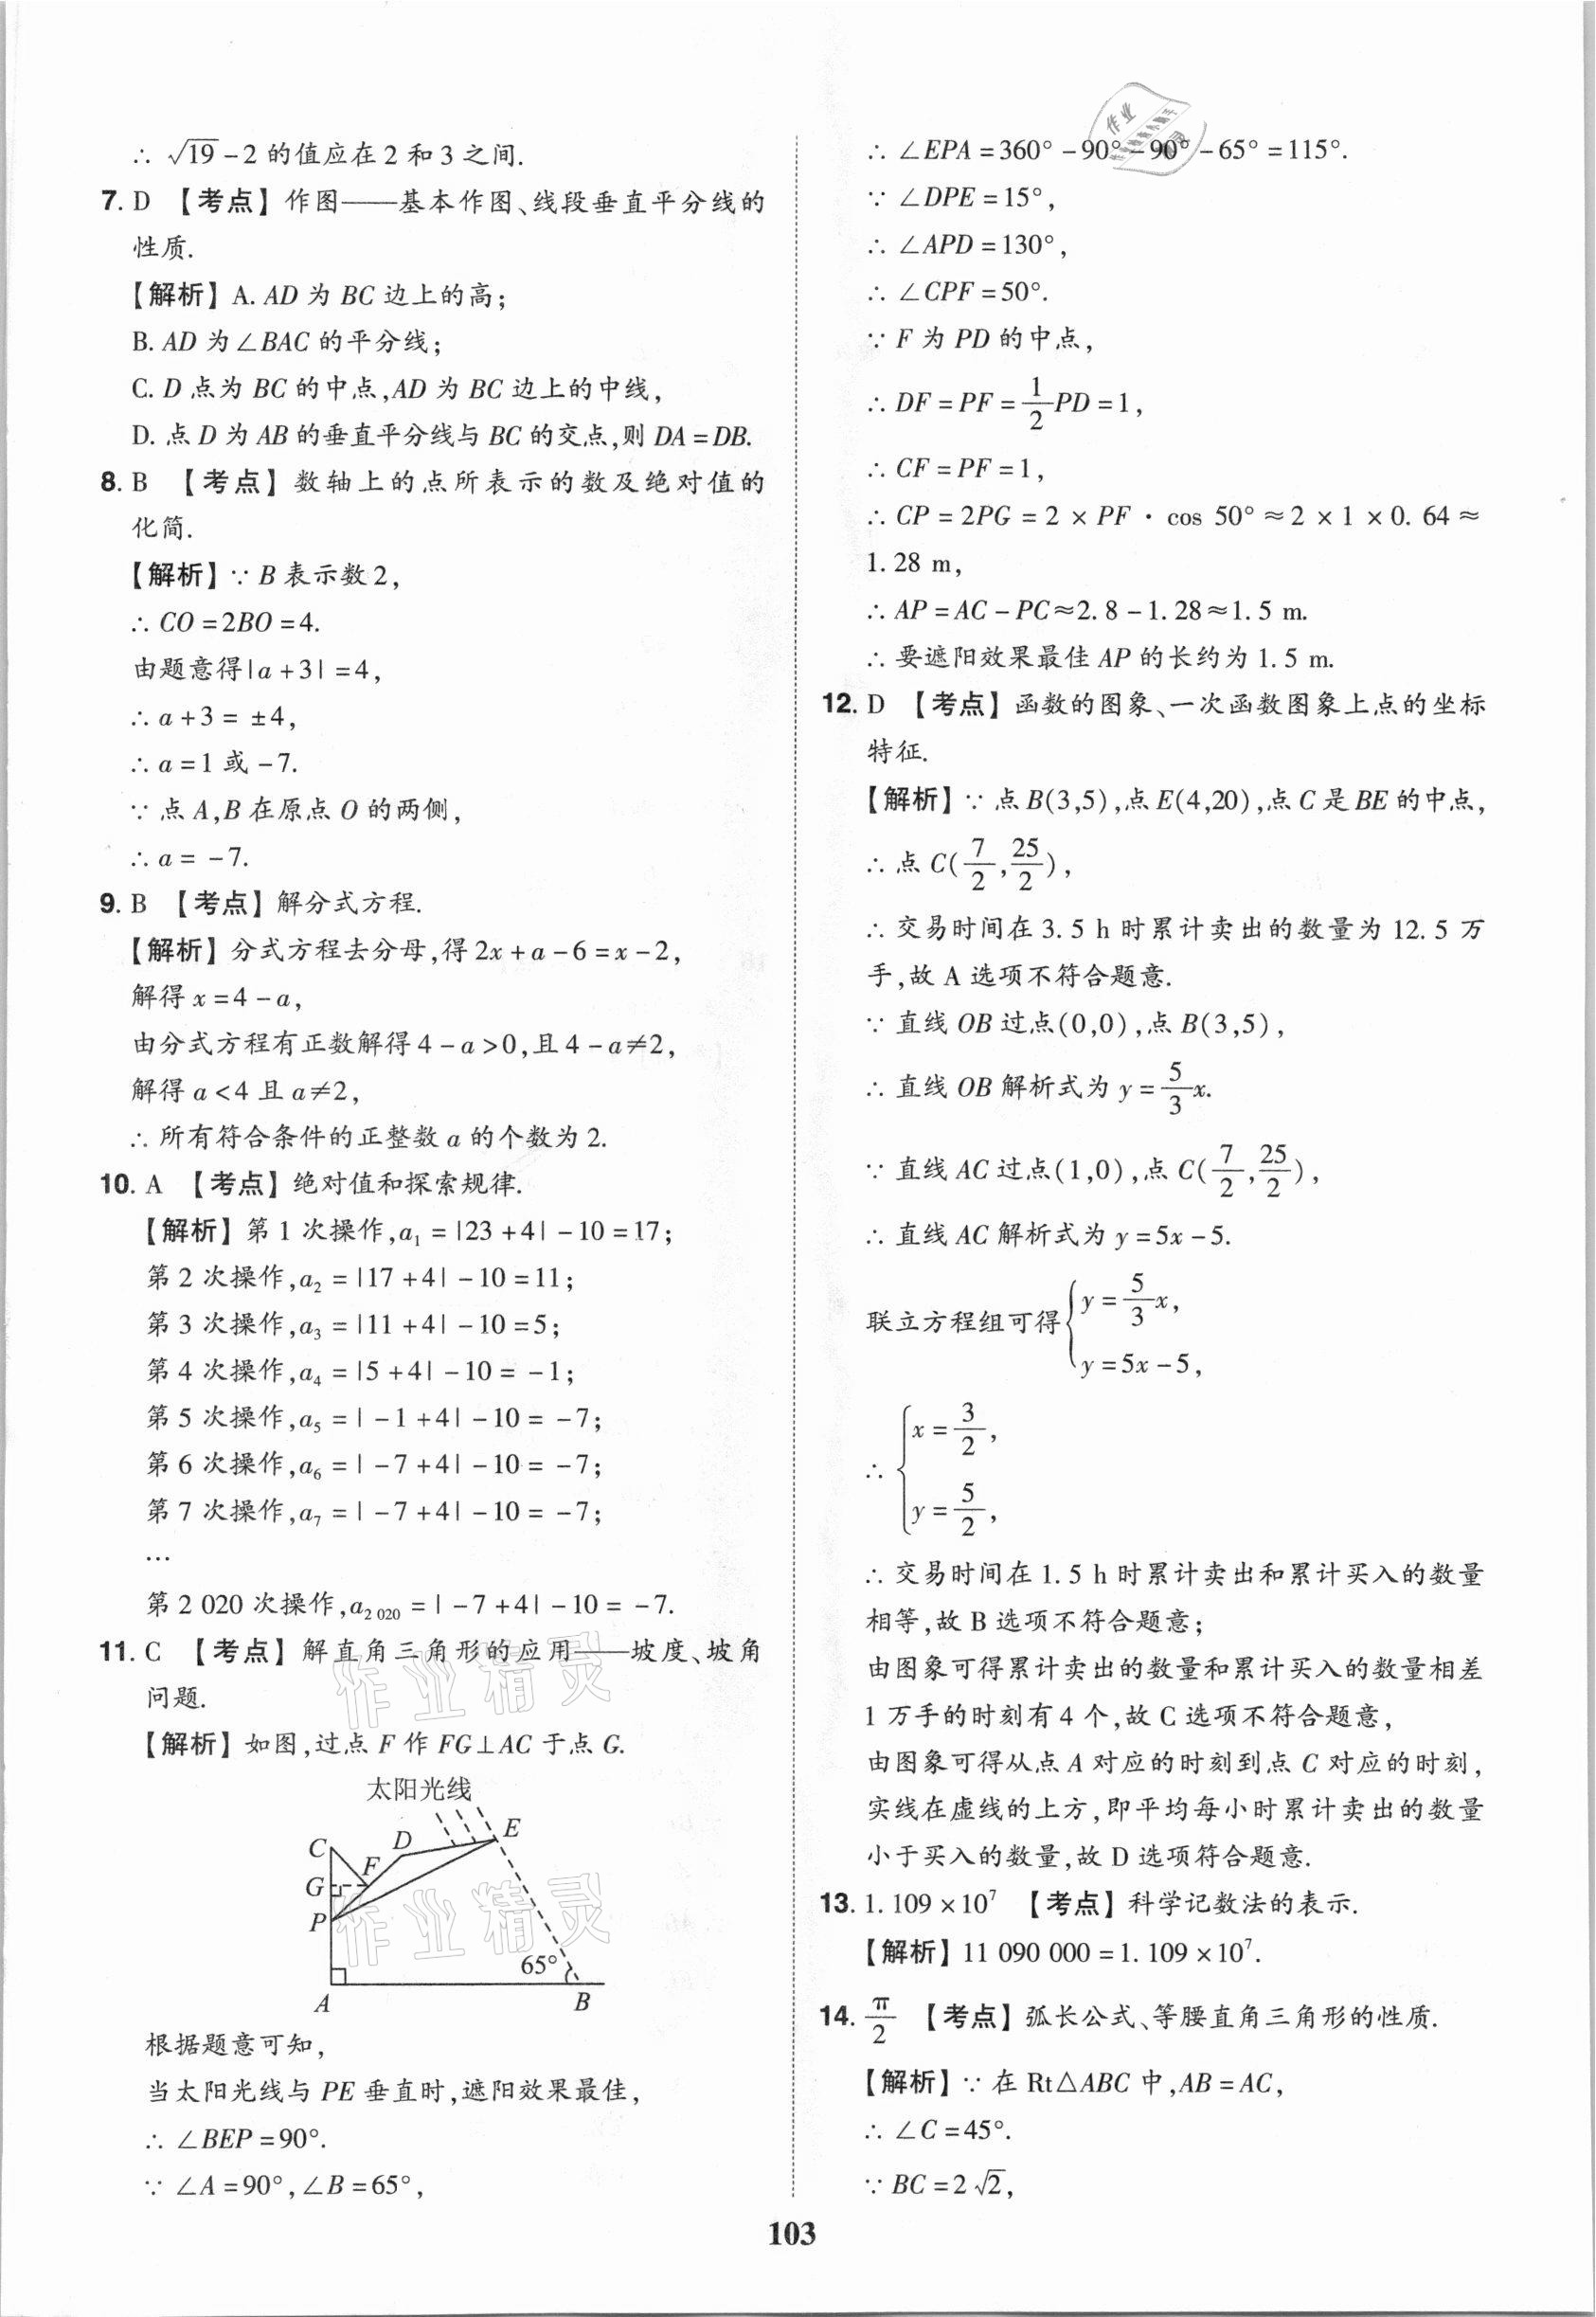 ∴ √19-2的值应在2和3之间.
7. D 【考点】作图——基本作图、线段垂直平分线的
性质.
【解析】A. AD为BC边上的高;
B. AD为∠BAC的平分线;
C. D点为BC的中点,AD为BC边上的中线,
D. 点D为AB的垂直平分线与BC的交点,则DA=DB.
8. B 【考点】数轴上的点所表示的数及绝对值的
化简.
【解析】∵B表示数2,
∴CO=2BO=4.
由题意得|a+3|=4,
∴a+3=±4,
∴a=1或-7.
∵点A,B在原点O的两侧,
∴a=-7.
9. B 【考点】解分式方程.
【解析】分式方程去分母,得2x+a-6=x-2,
解得x=4-a,
由分式方程有正数解得4-a>0,且4-a≠2,
解得a<4且a≠2,
∴所有符合条件的正整数a的个数为2.
10. A 【考点】绝对值和探索规律.
【解析】第1次操作,a₁=|23+4|-10=17;
第2次操作,a₂=|17+4|-10=11;
第3次操作,a₃=|11+4|-10=5;
第4次操作,a₄=|5+4|-10=-1;
第5次操作,a₅=|-1+4|-10=-7;
第6次操作,a₆=|-7+4|-10=-7;
第7次操作,a₇=|-7+4|-10=-7;
…
第2 020次操作,a₂ ₀₂₀=|-7+4|-10=-7.
11. C 【考点】解直角三角形的应用——坡度、坡角
问题.
【解析】如图,过点F作FG⊥AC于点G.
太阳光线
C
D
E
F
G
P
65°
A
B
作业精灵
作业精灵
根据题意可知,
当太阳光线与PE垂直时,遮阳效果最佳,
∴∠BEP=90°.
∵∠A=90°,∠B=65°,
作业
∴∠EPA=360°-90°-90°-65°=115°.
∵∠DPE=15°,
∴∠APD=130°,
∴∠CPF=50°.
∵F为PD的中点,
∴DF=PF=1/2PD=1,
∴CF=PF=1,
∴CP=2PG=2×PF·cos 50°≈2×1×0.64≈
1.28 m,
∴AP=AC-PC≈2.8-1.28≈1.5 m.
∴要遮阳效果最佳AP的长约为1.5 m.
12. D 【考点】函数的图象、一次函数图象上点的坐标
特征.
【解析】∵点B(3,5),点E(4,20),点C是BE的中点,
∴点C(7/2,25/2),
∴交易时间在3.5 h时累计卖出的数量为12.5万
手,故A选项不符合题意.
∵直线OB过点(0,0),点B(3,5),
∴直线OB解析式为y=5/3x.
∵直线AC过点(1,0),点C(7/2,25/2),
∴直线AC解析式为y=5x-5.
联立方程组可得{y=5/3x,
y=5x-5,
∴{x=3/2,
y=5/2,
∴交易时间在1.5 h时累计卖出和累计买入的数量
相等,故B选项不符合题意;
由图象可得累计卖出的数量和累计买入的数量相差
1万手的时刻有4个,故C选项不符合题意,
由图象可得从点A对应的时刻到点C对应的时刻,
实线在虚线的上方,即平均每小时累计卖出的数量
小于买入的数量,故D选项符合题意.
13. 1.109×10⁷ 【考点】科学记数法的表示.
【解析】11 090 000=1.109×10⁷.
14. π/2 【考点】弧长公式、等腰直角三角形的性质.
【解析】∵在Rt△ABC中,AB=AC,
∴∠C=45°.
∵BC=2√2,
103